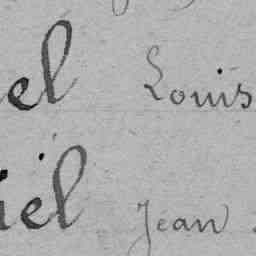 el Louis
iel Jean